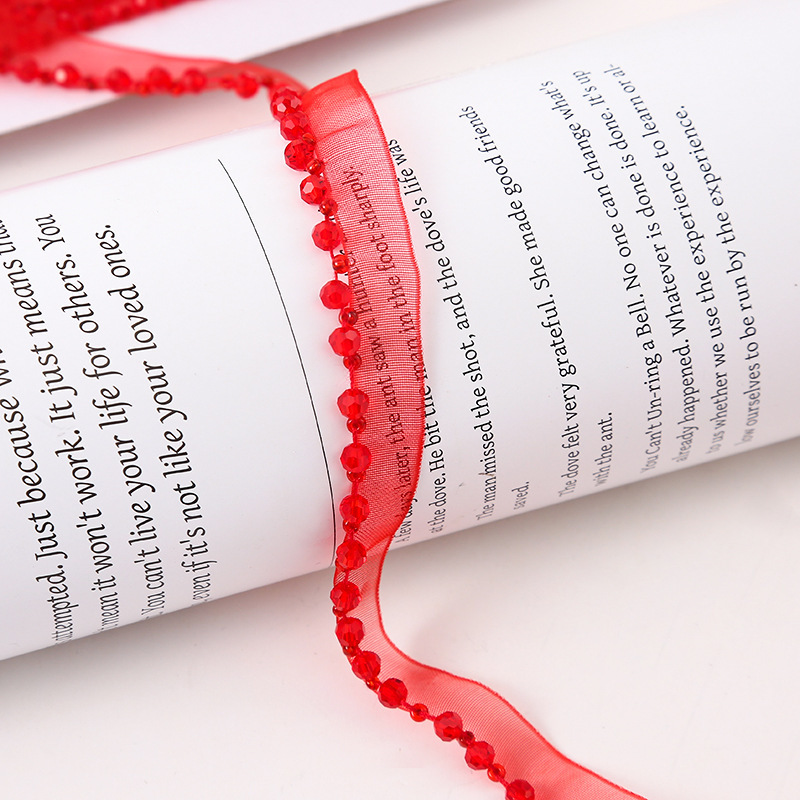 attempted. Just because
mean it won't work. It just means
You can't live your life for others. You
even if it's not like your loved ones.
A few days later, the ant saw a hunter
at the dove. He bit the man in the foot sharply.
The man missed the shot, and the dove's life was
saved.
The dove felt very grateful. She made good friends
with the ant.
You Can't Un-ring a Bell. No one can change what's
already happened. Whatever is done is done. It's up
to us whether we use the experience to learn or al-
low ourselves to be run by the experience.